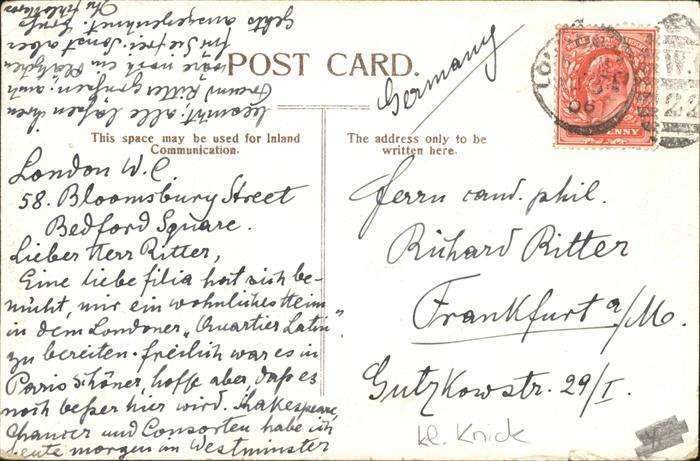 POST CARD.
Germany
This space may be used for Inland
Communication.
The address only to be
written here.
London W.C.
58. Bloomsbury Street
Bedford Square.
Lieber Herr Ritter,
Eine liebe filia hat sich be-
müht, mir ein wohnliches Heim
in dem Londoner „Quartier Latin"
zu bereiten. freilich war es in
Paris schöner, hoffe aber, daß es
noch beßer hier wird. Shakespeare,
Chaucer und Consorten habe ich
heute morgen in Westminster
besucht, alle laßen Ihren
Freund Ritter grüßen. auch
wäre noch ein Plätzchen
für Sie frei. Sonst aber
Gehts ausgezeichnet.
Herrn cand. phil.
Richard Ritter
Frankfurt a/M.
Gutzkowstr. 29/I.
kl. Knick
PENNY
06
W.C
22